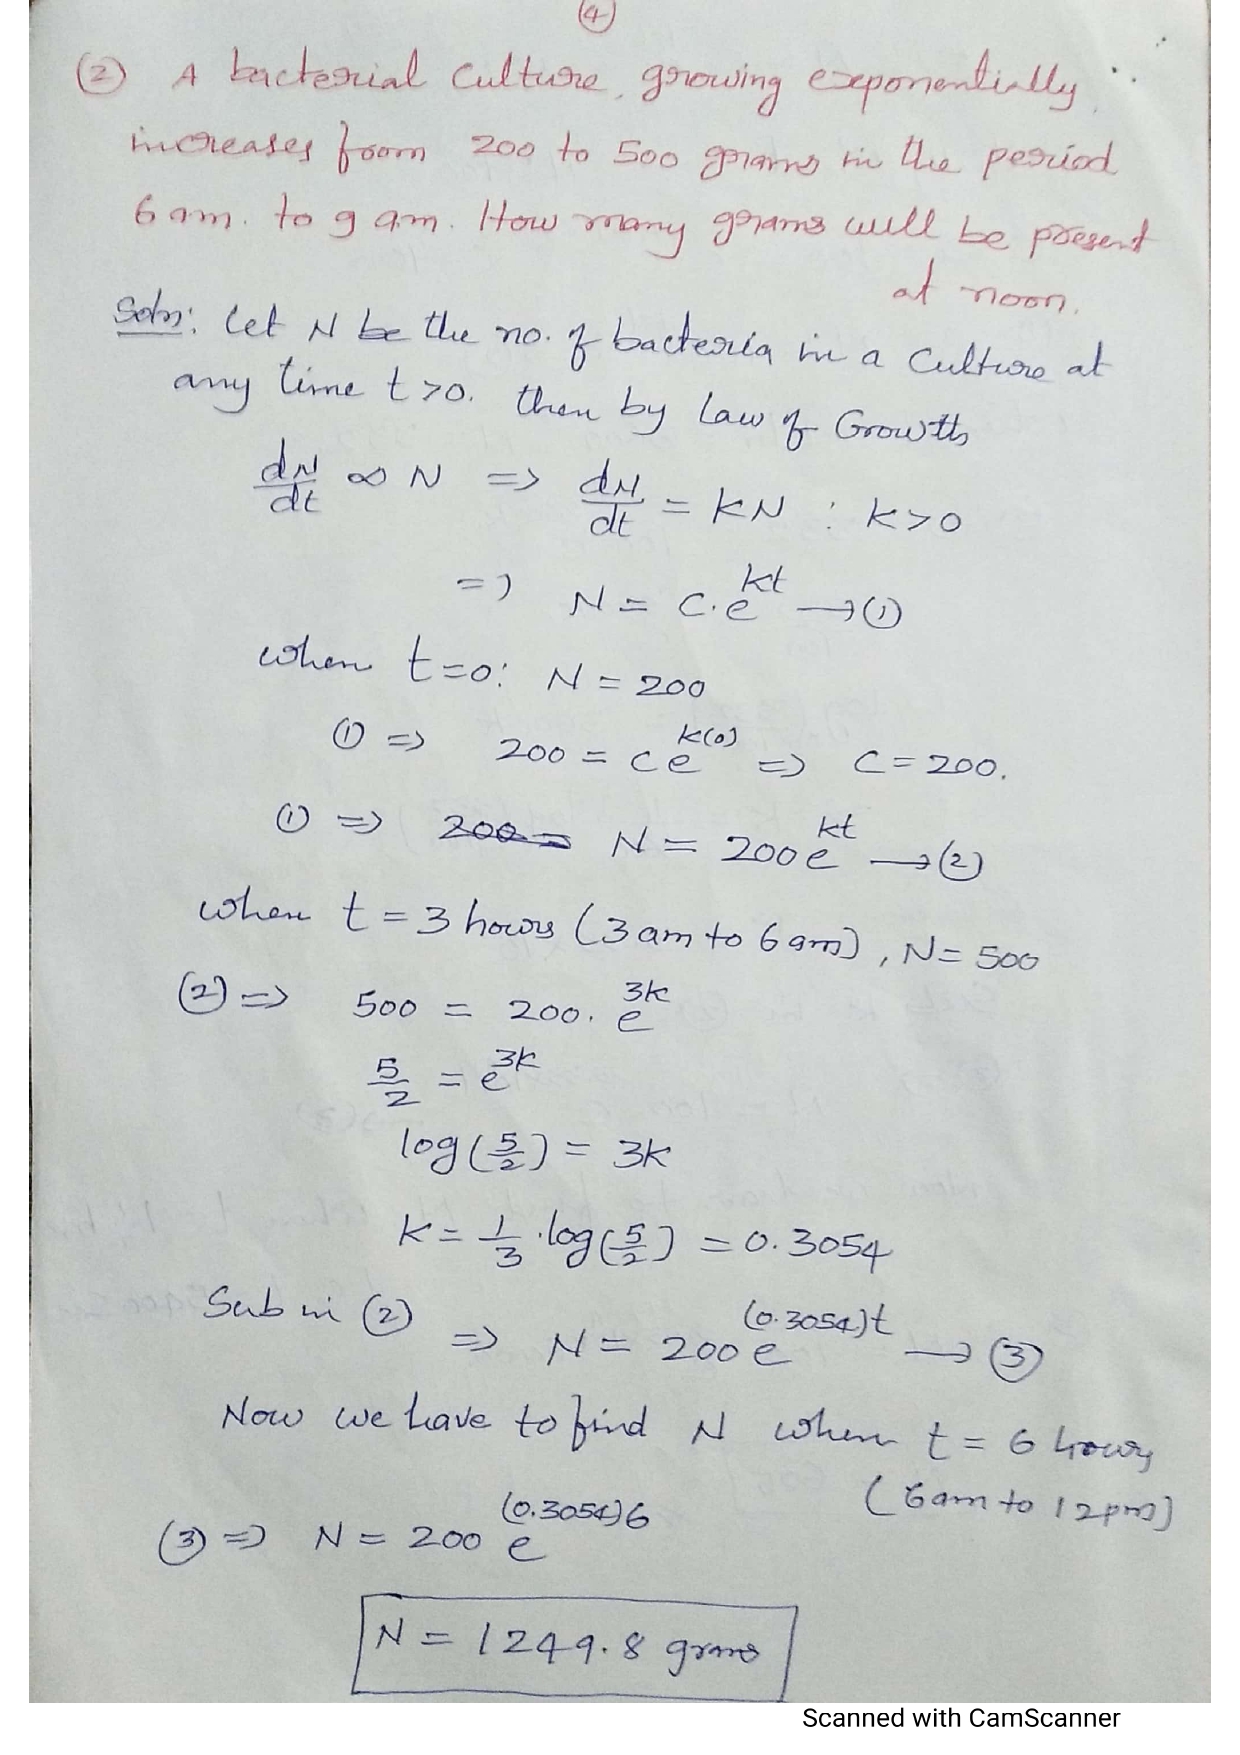 (4)
(2) A bacterial culture, growing exponentially
increases from 200 to 500 grams in the period
6 am. to 9 am. How many grams will be present
at noon.
Soln: Let N be the no. of bacteria in a culture at
any time t>0. then by Law of Growth
dN/dt ∝ N => dN/dt = KN : K>0
=> N = C.e^kt →(1)
when t=0: N = 200
(1) => 200 = C e^k(0) => C = 200.
(1) => 200 = N = 200 e^kt →(2)
when t = 3 hours (3 am to 6 am), N = 500
(2) => 500 = 200. e^3k
5/2 = e^3k
log(5/2) = 3k
K = 1/3 . log(5/2) = 0.3054
Sub in (2) => N = 200 e^(0.3054)t →(3)
Now we have to find N when t = 6 hours
(6am to 12pm)
(3) => N = 200 e^(0.3054)6
N = 1249.8 grams
Scanned with CamScanner